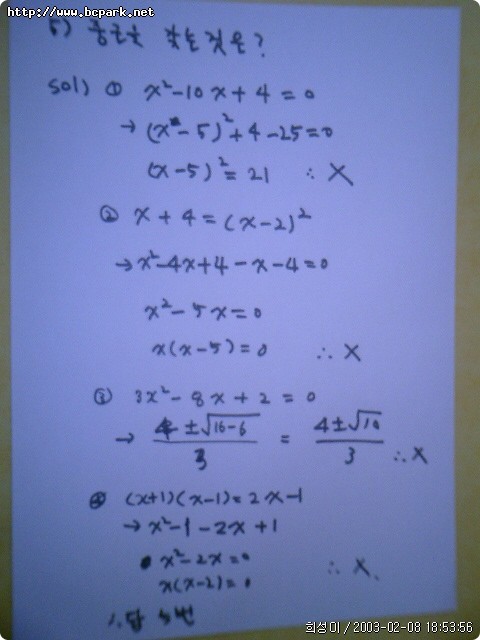 http://www.bcpark.net
5) 중근을 갖는 것은?
sol) ① x²-10x+4=0
→ (x-5)²+4-25=0
(x-5)²=21 ∴ X
② x+4=(x-2)²
→ x²-4x+4-x-4=0
x²-5x=0
x(x-5)=0 ∴ X
③ 3x²-8x+2=0
→ 4±√16-6 / 3 = 4±√10 / 3 ∴ X
④ (x+1)(x-1)=2x-1
→ x²-1-2x+1
x²-2x=0
x(x-2)=0 ∴ X
∴ 답 5번
희성이 / 2003-02-08 18:53:56